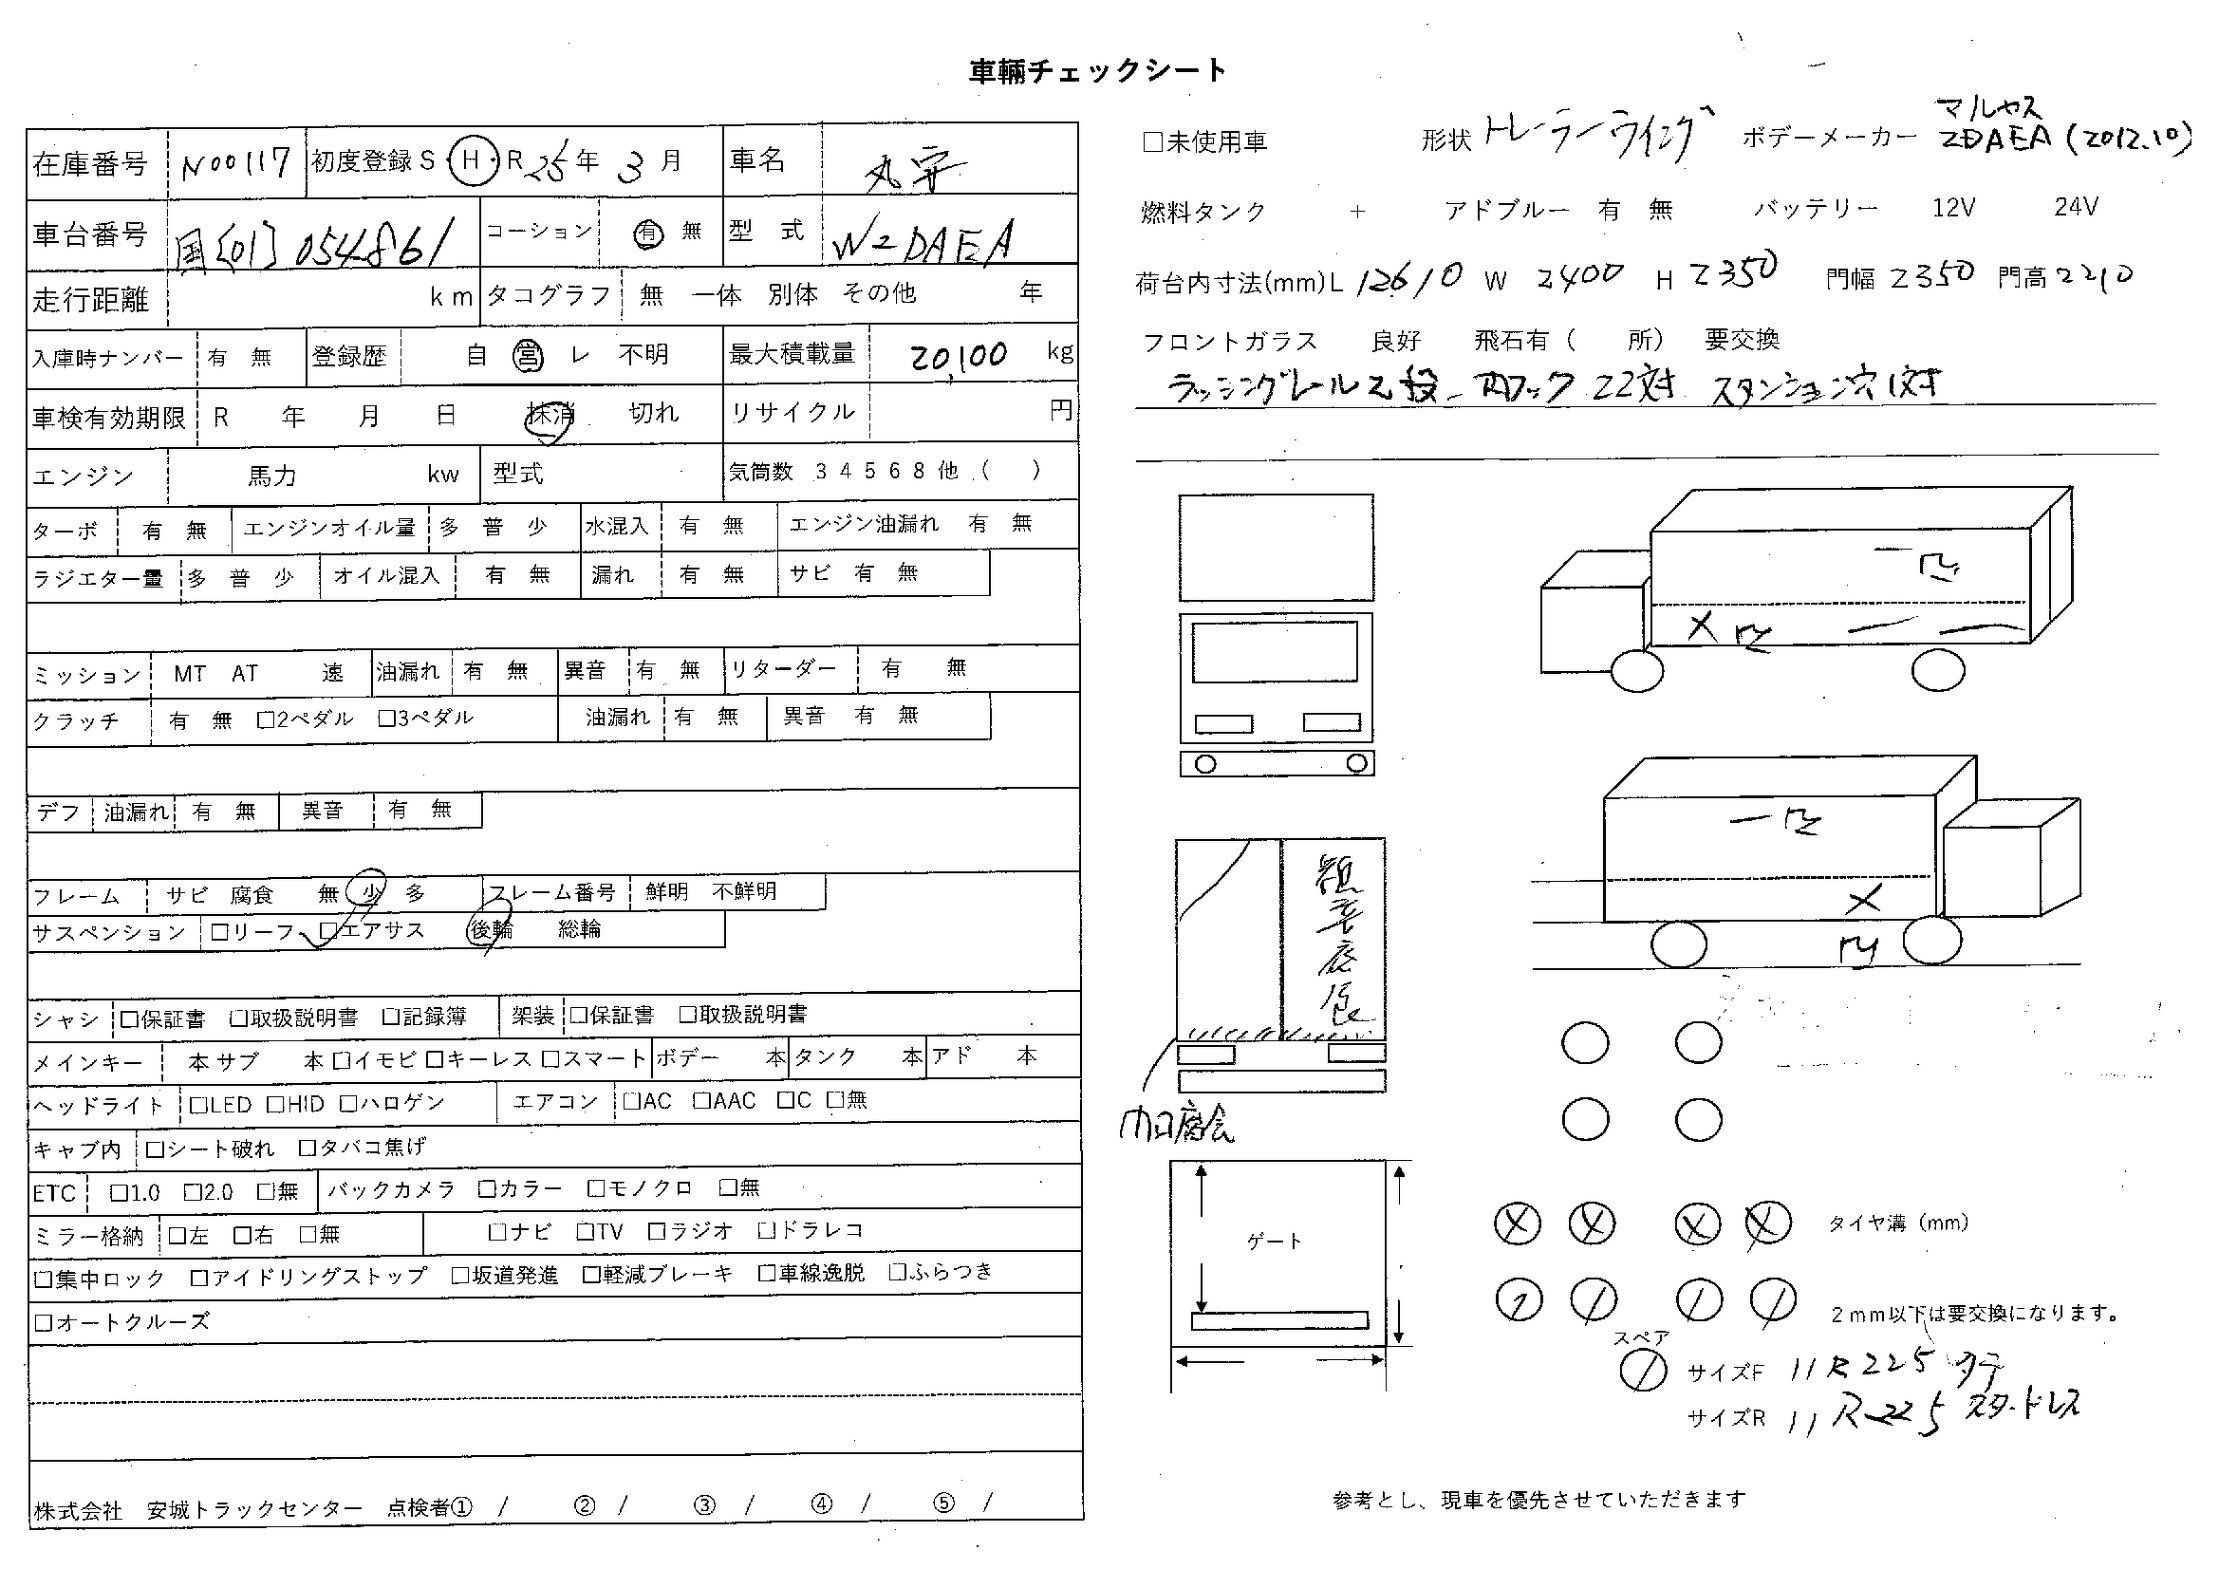 車輛チェックシート
在庫番号 N00117 初度登録 S・H・R 25年 3月 車名
車台番号 国[01]054861 コーション 有 無 型 式 W=DAEA
走行距離 km タコグラフ 無 一体 別体 その他 年
入庫時ナンバー 有 無 登録歴 自 営 レ 不明 最大積載量 20,100 kg
車検有効期限 R 年 月 日 抹消 切れ リサイクル 円
エンジン 馬力 kw 型式 気筒数 3 4 5 6 8 他 ( )
ターボ 有 無 エンジンオイル量 多 普 少 水混入 有 無 エンジン油漏れ 有 無
ラジエター量 多 普 少 オイル混入 有 無 漏れ 有 無 サビ 有 無
ミッション MT AT 速 油漏れ 有 無 異音 有 無 リターダー 有 無
クラッチ 有 無 □2ペダル □3ペダル 油漏れ 有 無 異音 有 無
デフ 油漏れ 有 無 異音 有 無
フレーム サビ 腐食 無 少 多 フレーム番号 鮮明 不鮮明
サスペンション □リーフ □エアサス 後輪 総輪
シャシ □保証書 □取扱説明書 □記録簿 架装 □保証書 □取扱説明書
メインキー 本 サブ 本 □イモビ □キーレス □スマート ボデー 本 タンク 本 アド 本
ヘッドライト □LED □HID □ハロゲン エアコン □AC □AAC □C □無
キャブ内 □シート破れ □タバコ焦げ
ETC □1.0 □2.0 □無 バックカメラ □カラー □モノクロ □無
ミラー格納 □左 □右 □無 □ナビ □TV □ラジオ □ドラレコ
□集中ロック □アイドリングストップ □坂道発進 □軽減ブレーキ □車線逸脱 □ふらつき
□オートクルーズ
株式会社 安城トラックセンター 点検者① / ② / ③ / ④ / ⑤ /
マルヤス
□未使用車 形状 トレーラーウイング ボデーメーカー ZDAEA (2012.10)
燃料タンク + アドブルー 有 無 バッテリー 12V 24V
荷台内寸法(mm) L 12610 W 2400 H 2350 門幅 2350 門高 2210
フロントガラス 良好 飛石有 ( 所) 要交換
ラッシングレール2段 内フック 22対 スタンション穴1対
ゲート
タイヤ溝 (mm)
2mm以下は要交換になります。
スペア
サイズF 11R225
サイズR 11R225 スタッドレス
参考とし、現車を優先させていただきます